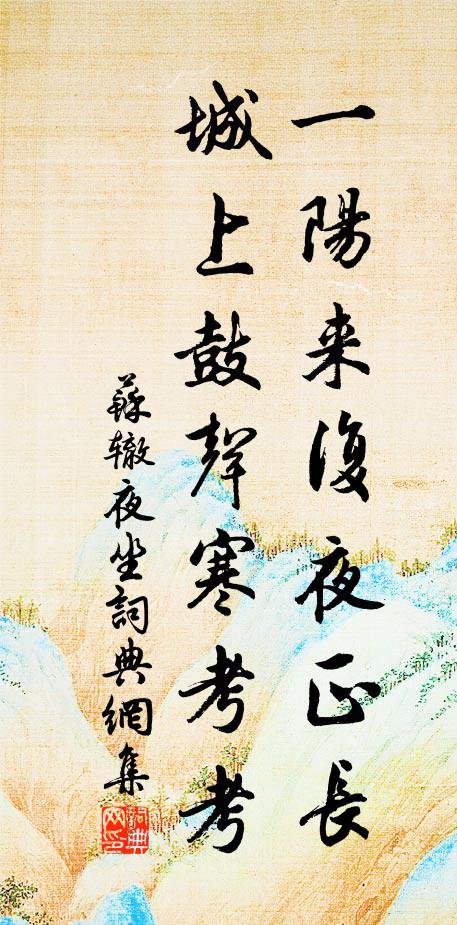 一陽来復夜正長
城上鼓聲寒考考
蘇辙夜坐詞典網集
詞典
网印